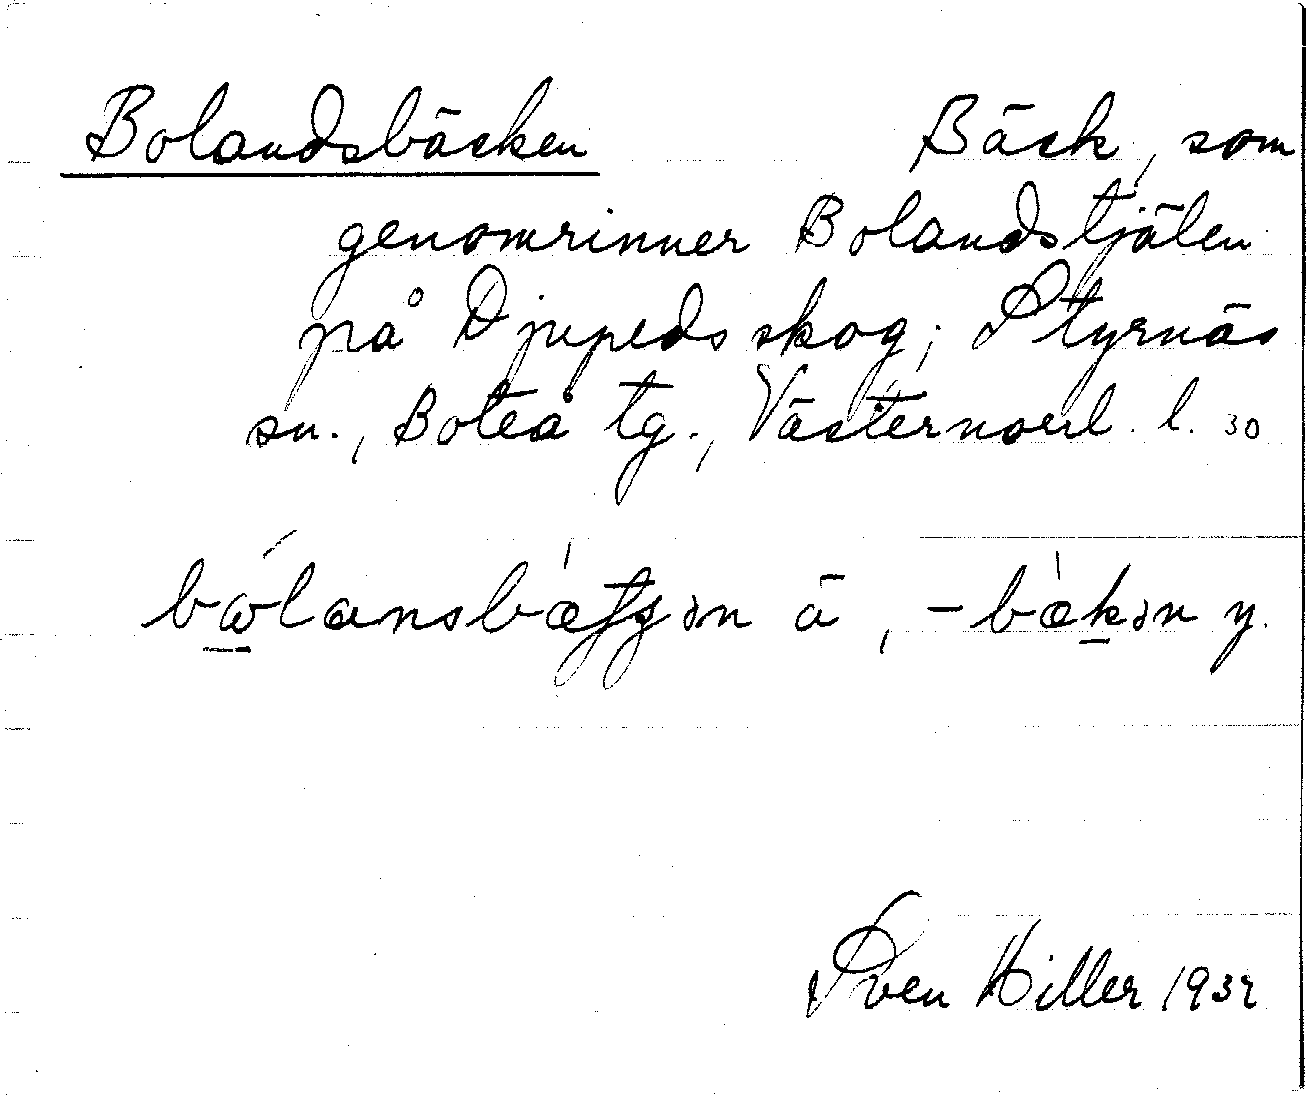 Bolandsbäcken Bäck, som
genomrinner Bolandstjälen
på Djupedsskog; Styrnäs
sn., Boteå tg., Västernorrl. l. 30
bólansbæ̀tʃən ä, -bæ̀kən y.
Sven Hiller 1932